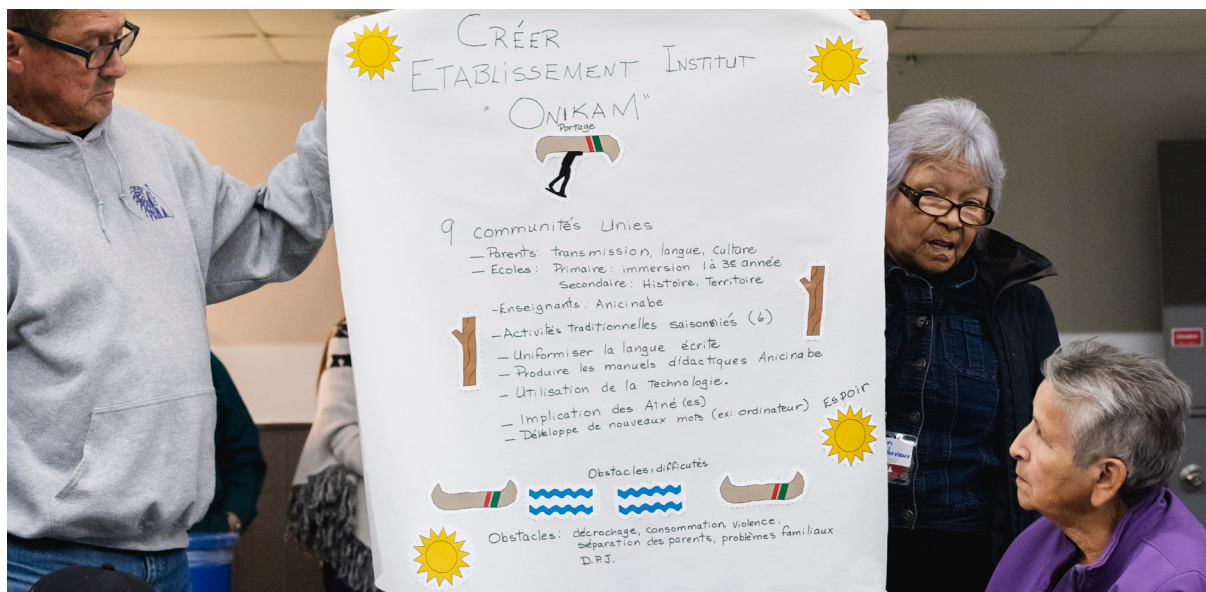 CRÉER
ETABLISSEMENT INSTITUT
"ONIKAM"
Portage
9 communités Unies
— Parents: transmission, langue, culture
— Ecoles: Primaire: immersion 1 à 3e année
Secondaire: Histoire, Territoire
- Enseignants: Anicinabe
— Activités traditionnelles saisonnies (6)
— Uniformiser la langue écrite
— Produire les manuels didactiques Anicinabe
— Utilisation de la Technologie.
— Implication des Aîné(es)
— Développe de nouveaux mots (ex: ordinateur)
Espoir
Obstacles=difficutés
Obstacles: décrochage, consommation, violence,
séparation des parents, problèmes familiaux
D.P.J.